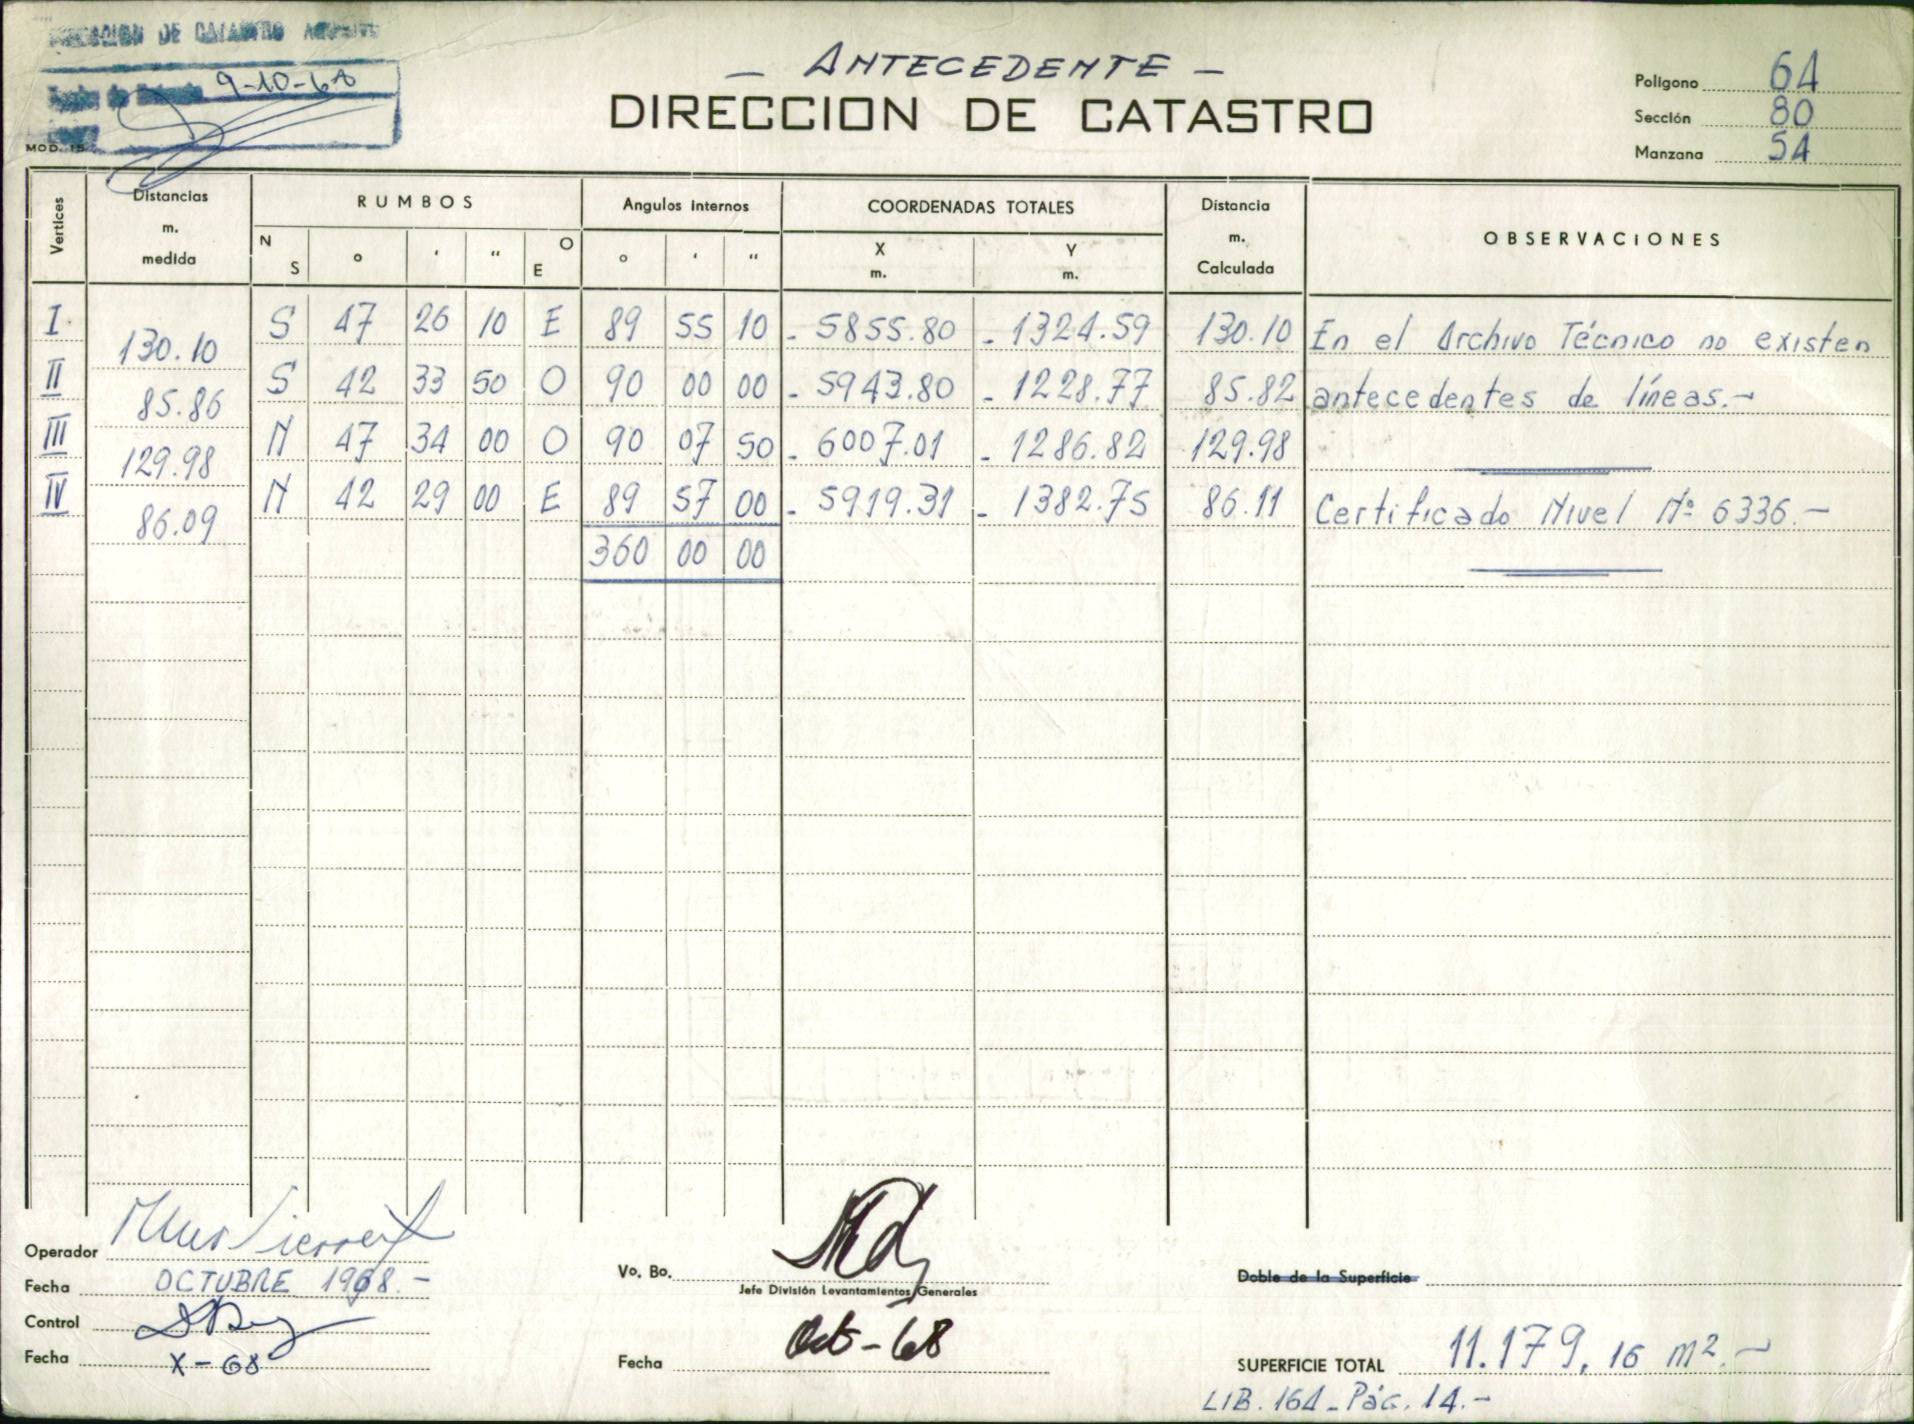 DIRECCION DE CATASTRO ARCHIVO
9-10-68
MOD. 15
- ANTECEDENTE -
DIRECCION DE CATASTRO
Poligono 64
Sección 80
Manzana 54
Vertices
Distancias m. medida
RUMBOS
N S ° ' " O E
Angulos internos
° ' "
COORDENADAS TOTALES
X m. Y m.
Distancia m. Calculada
OBSERVACIONES
I S 47 26 10 E 89 55 10 - 5855.80 - 1324.59 130.10 En el Archivo Técnico no existen
130.10
II S 42 33 50 O 90 00 00 - 5943.80 - 1228.77 85.82 antecedentes de líneas.-
85.86
III N 47 34 00 O 90 07 50 - 6007.01 - 1286.82 129.98
129.98
IV N 42 29 00 E 89 57 00 - 5919.31 - 1382.75 86.11 Certificado Nivel Nº 6336.-
86.09
360 00 00
Operador
Fecha OCTUBRE 1968.-
Control
Fecha X-68
Vo. Bo.
Jefe División Levantamientos Generales
Fecha Oct-68
Doble de la Superficie
SUPERFICIE TOTAL 11.179,16 m2.-
LIB. 164 - Pág. 14.-